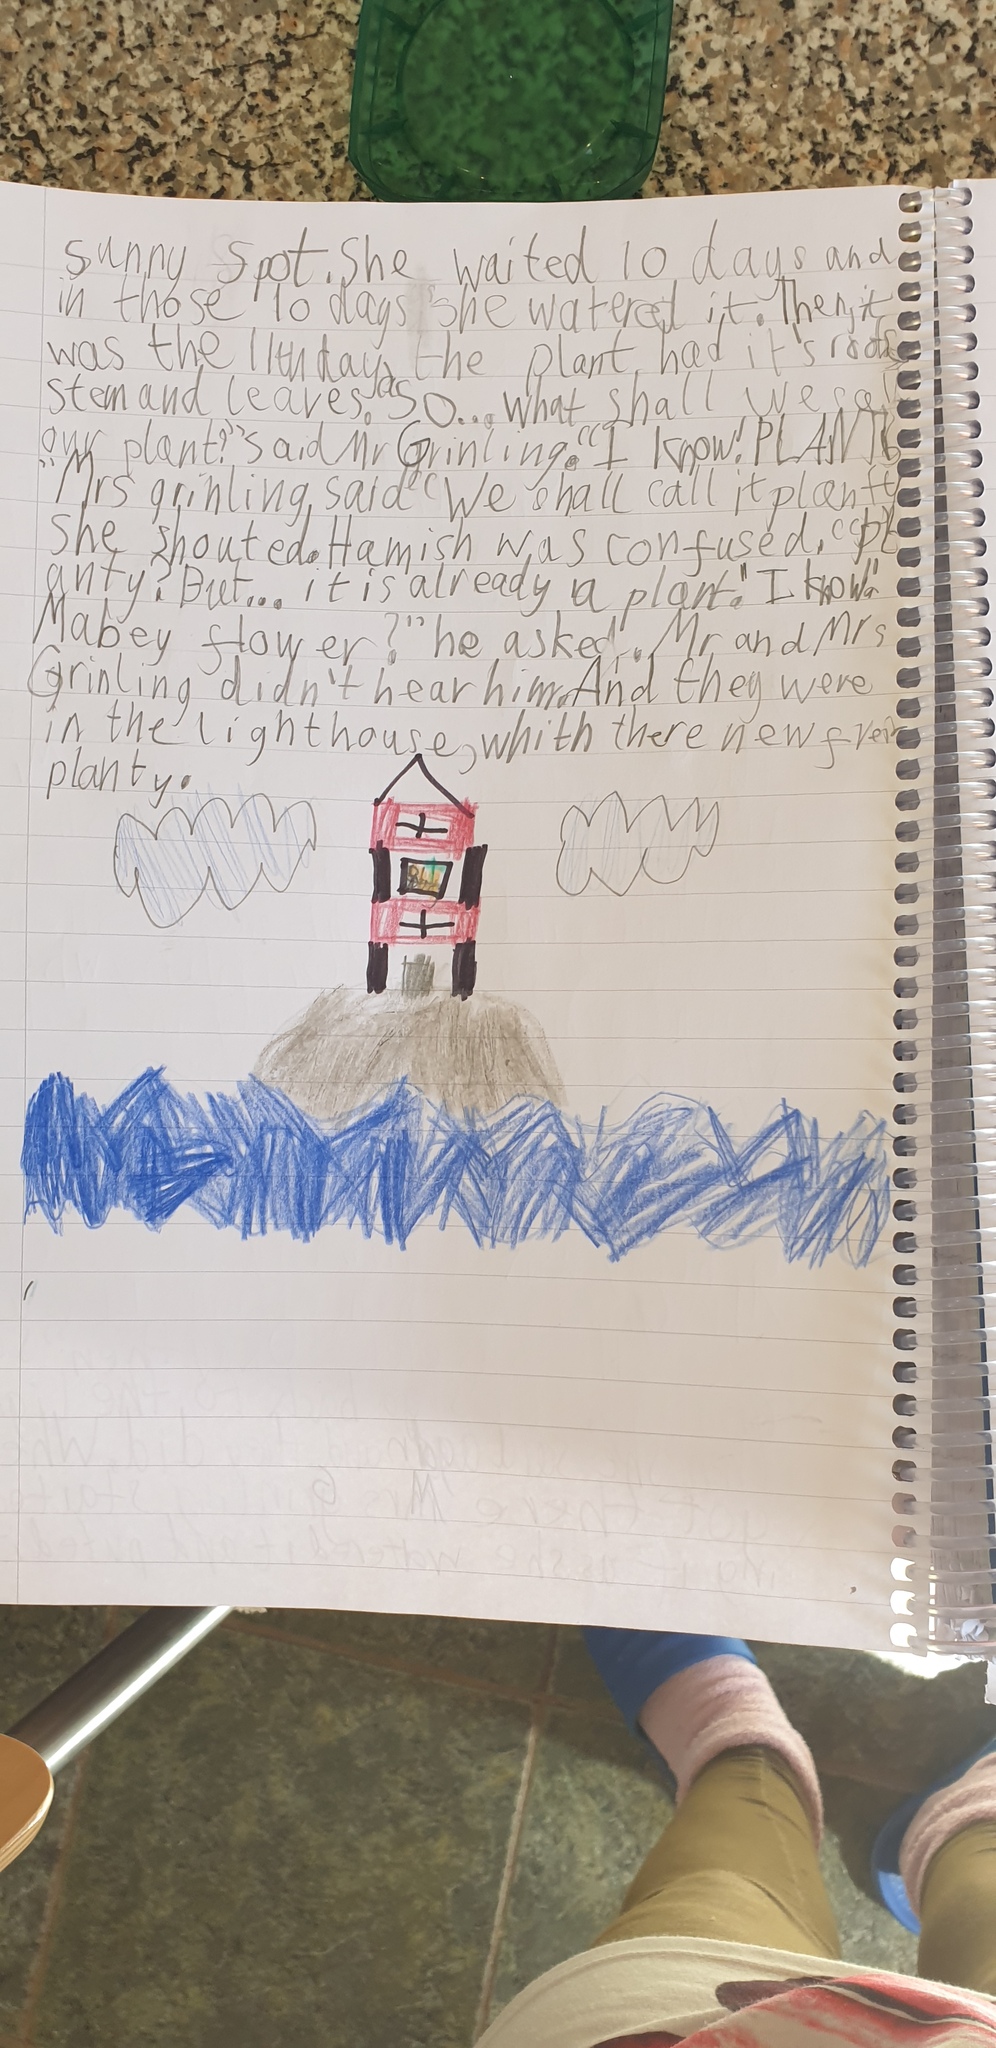 sunny spot. She waited 10 days and
in those 10 days she watered it. Then, it
was the 11th day, the plant had it's roots
stem and leaves. "So... what shall we call
our plant?" said Mr Grinling. "I know! PLANTY
"Mrs grinling said "We shall call it planty
she shouted. Hamish was confused. "pl
anty? But... it is already a plant." I know"
Mabey flower?" he asked. Mr and Mrs
Grinling didn't hear him. And they were
in the lighthouse, whith there new
planty.